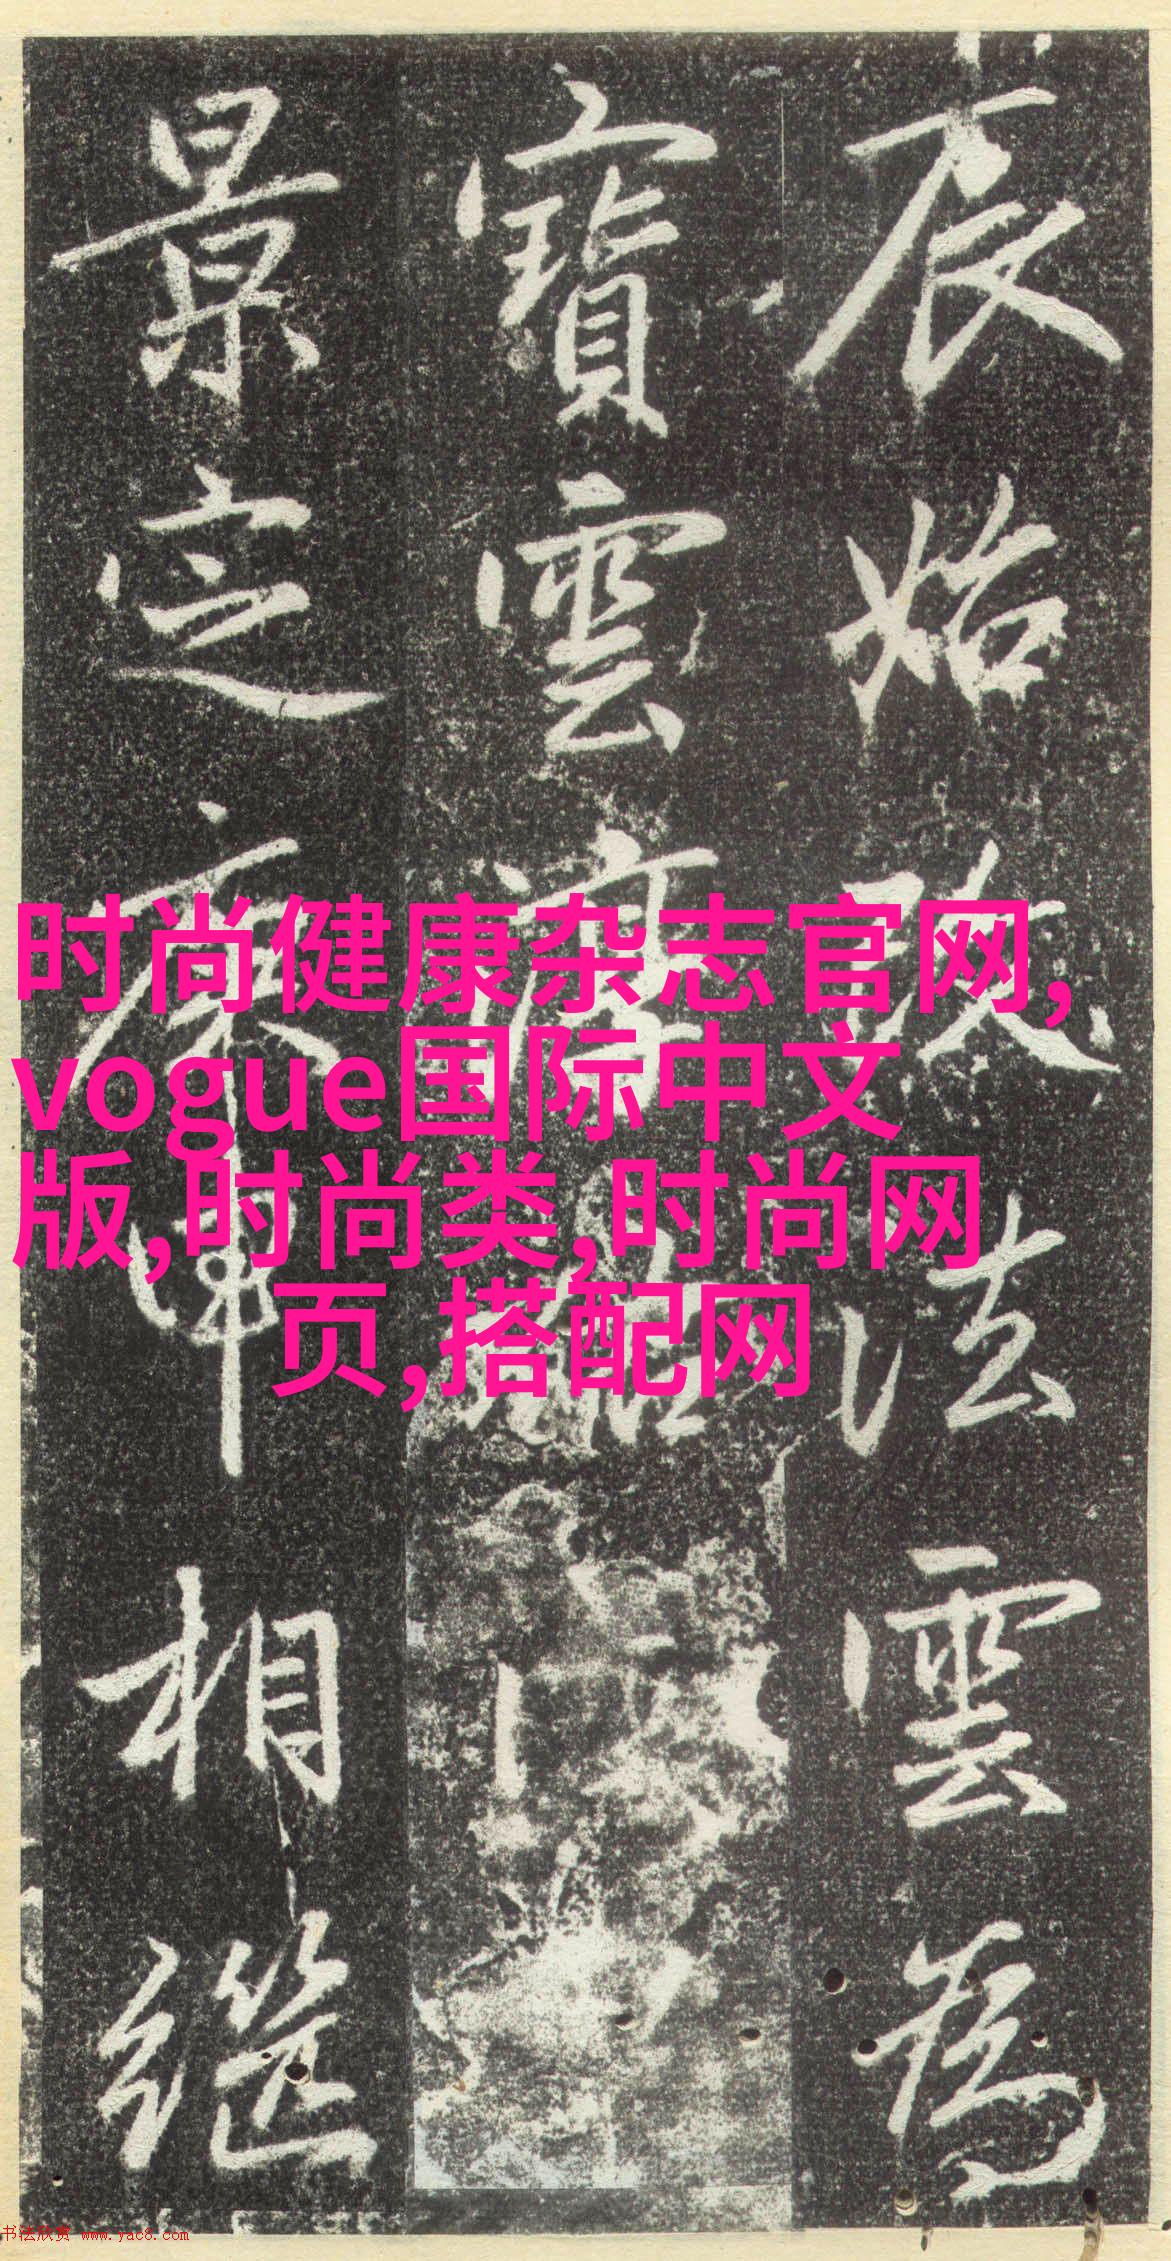 辰始改法雲為
寶雲度
景定庚申相繼
时尚健康杂志官网,
vogue国际中文
版,时尚类,时尚网
页,搭配网
书法欣赏 www.yac8.com